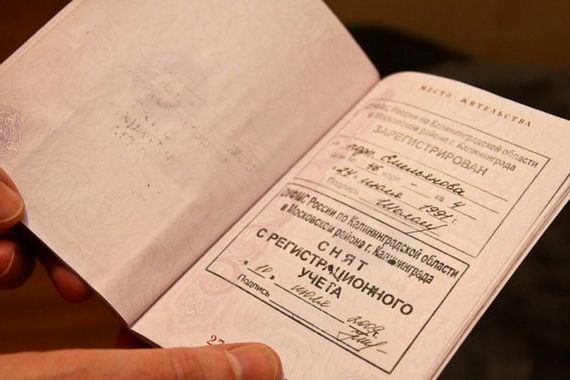 МЕСТО ЖИТЕЛЬСТВА
ОУФМС России по Калининградской области
в Московском районе г. Калининграда
ЗАРЕГИСТРИРОВАН
дом № 46 корп. - кв 4
24 июля 1991
Подпись
ОУФМС России по Калининградской области
в Московском районе г. Калининграда
СНЯТ
С РЕГИСТРАЦИОННОГО
УЧЕТА
10 июля
Подпись